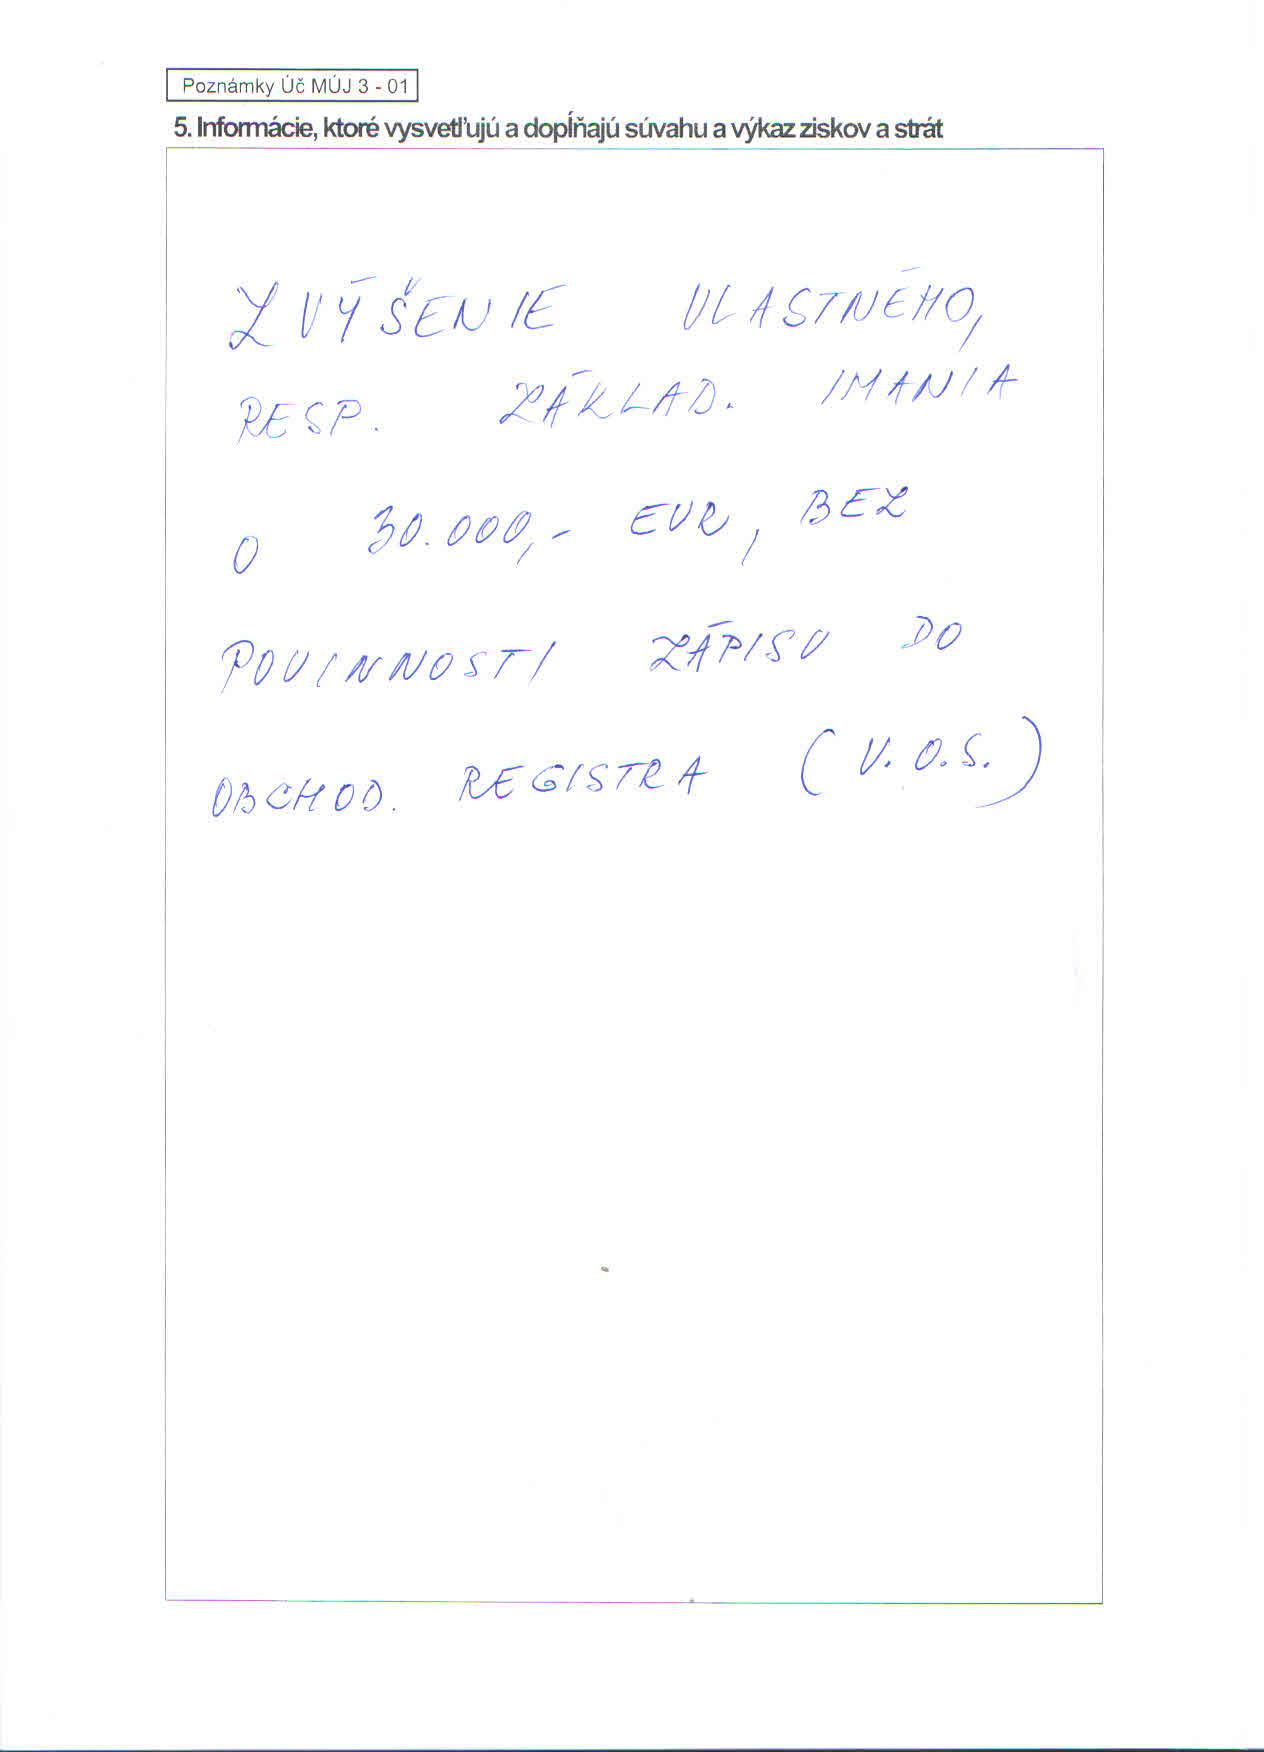 Poznámky Úč MÚJ 3 - 01
5. Informácie, ktoré vysvetľujú a dopĺňajú súvahu a výkaz ziskov a strát
ZVÝŠENIE VLASTNÉHO,
RESP. ZÁKLAD. IMANIA
O 30.000,- EUR, BEZ
POVINNOSTI ZÁPISU DO
OBCHOD. REGISTRA (V.O.S.)